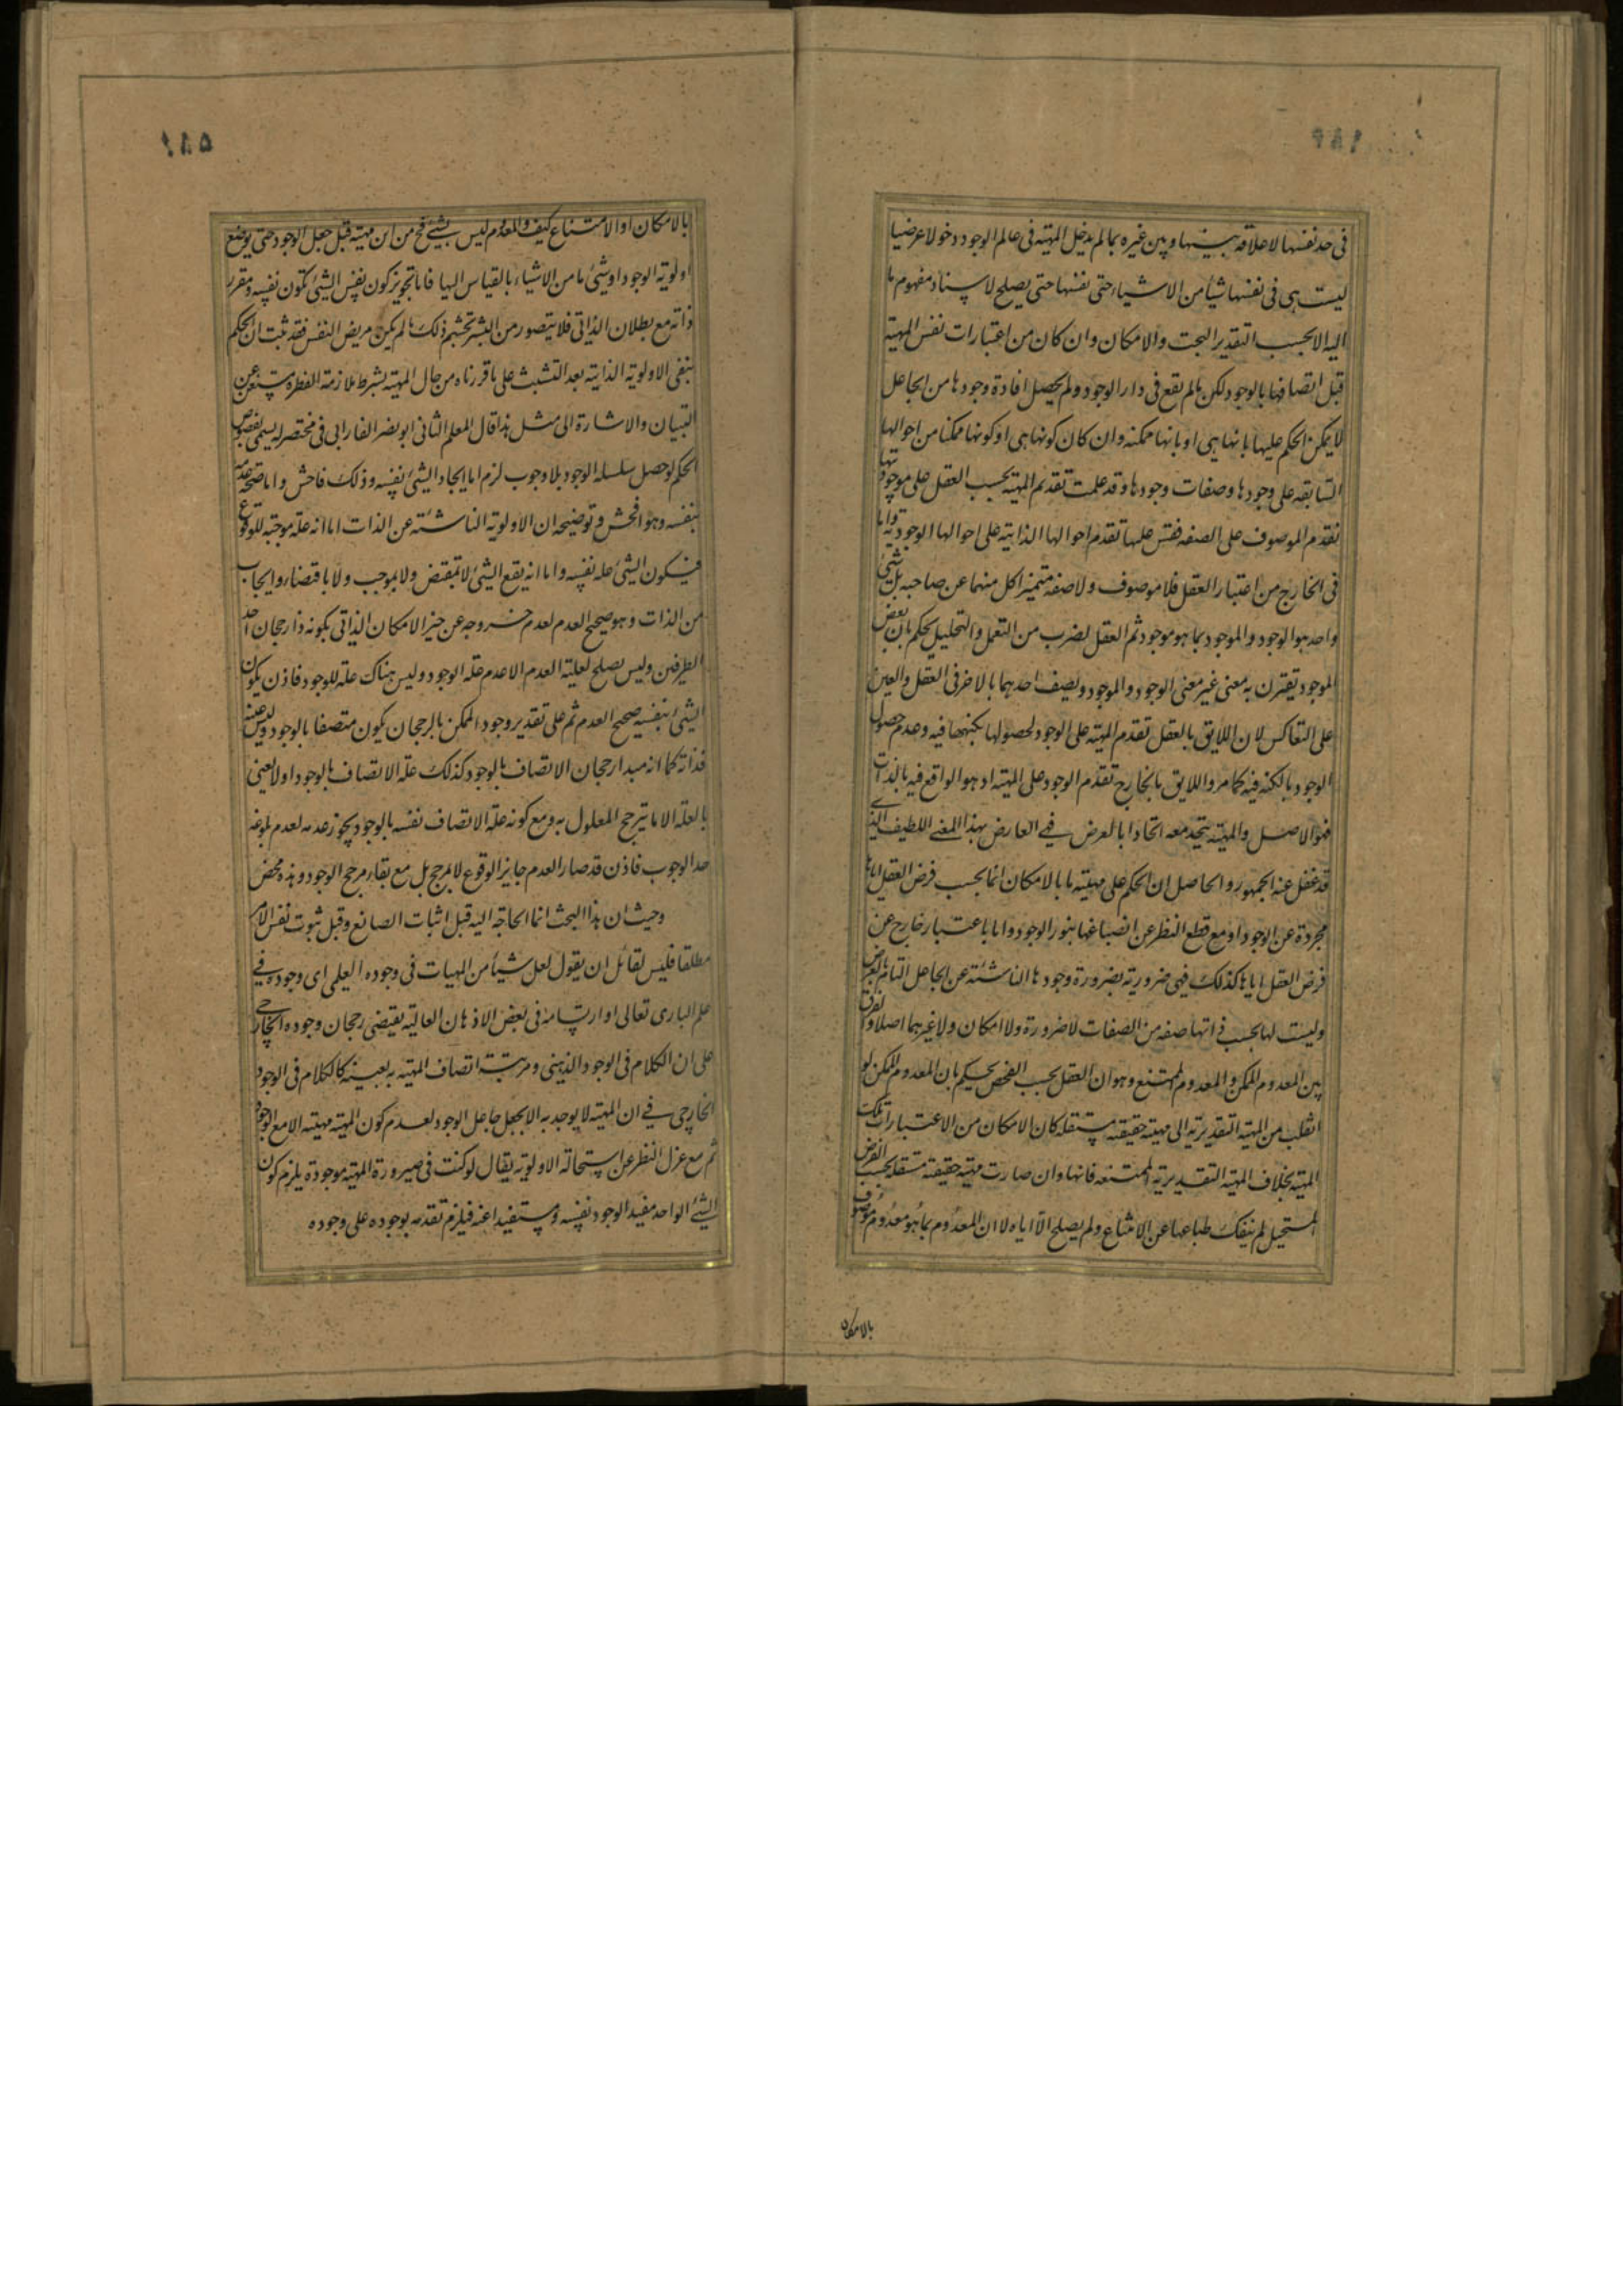 فى حد نفسها لا علاقة بينها و بين غيره بما لم يدخل المهية فى عالم الوجود دخولا عرضيا
ليست هى فى نفسها شيأ من الاشياء حتى نفسها حتى يصلح لاسناد مفهوم ما
اليه الا بحسب التقدير البحت والامكان وان كان من اعتبارات نفس المهية
قبل اتصافها بالوجود لكن ما لم يقع فى دار الوجود ولم يحصل افادة وجودها من الجاعل
لا يمكن الحكم عليها بانها هى او بانها ممكنة وان كان كونها هى او كونها ممكنا من احوالها
السابقه على وجودها وصفات وجودها وقد علمت تقدم المهية بحسب العقل على موجوديتها
تقدم الموصوف على الصفه فقس عليها تقدم احوالها الذاتية على احوالها الوجودية واما
فى الخارج من اعتبار العقل فلا موصوف ولا صفه متميزا كل منهما عن صاحبه بل شئ
واحد هو الوجود والموجود بما هو موجود ثم العقل لضرب من التعمل والتحليل يحكم بان بعض
الموجود يقترن به معنى غير معنى الوجود والموجود ويصف احدهما بالاخر فى العقل والعين
على التعاكس لان اللايق بالعقل تقدم المهية على الوجود لحصولها بكنهها فيه وعدم حصول
الوجود بالكنه فيه كما مر واللايق بالخارج تقدم الوجود على المهية اذ هو الواقع فيه بالذات
فهو الاصل والمهية يتحد معه اتحادا بالعرض فى العارض بهذا المعنى اللطيف الذى
قد غفل عنه الجمهور والحاصل ان الحكم على مهية ما بالامكان انما بحسب فرض العقل اياها
مجردة عن الوجود او مع قطع النظر عن انصباغها بنور الوجود واما باعتبار خارج عن
فرض العقل اياها كذلك فهى ضرورية بضرورة وجودها الناشئة عن الجاعل التام بالعرض
وليست لها بحسب ذاتها صفه من الصفات لا ضرورة ولا امكان ولا غيرهما اصلا والفرق
بين المعدوم الممكن والمعدوم الممتنع وهو ان العقل بحسب الفحص يحكم بان المعدوم الممكن لو
انقلب من المهية التقديرية الى مهية حقيقة مستقله كان الامكان من الاعتبارات تلك
المهية بخلاف المهية التقديرية الممتنعه فانها وان صارت مهية حقيقة مستقله بحسب الفرض
المستحيل لم ينفك طباعها عن الامتناع ولم يصلح الا اياه لا ان المعدوم بما هو معدوم موصوف
بالامكان
بالامكان او الامتناع كيف والمعدوم ليس بشئ فح من اين مهية قبل جعل الوجود حتى يوضع
اولوية الوجود او شئ ما من الاشياء بالقياس اليها فاما تجويز كون نفس الشئ تكون نفسه ومقرر
ذاته مع بطلان الذاتى فلا يتصور من البشر تجشم ذلك ما لم يكن مريض النفس فقد ثبت ان الحكم
بنفى الاولوية الذاتية بعد التشبث على ما قررناه من حال المهية بشرط ملازمة الفطرة مستغن عن
التبيان والاشارة الى مثل هذا قال المعلم الثانى ابو نصر الفارابى فى مختصر له يسمى بفصوص
الحكم لو حصل سلسلة الوجود بلا وجوب لزم اما ايجاد الشئ نفسه وذلك فاحش واما صحة عدمه
بنفسه وهو افحش وتوضيحه ان الاولوية الناشئة عن الذات اما انه علة موجبة للوقوع
فيكون الشئ علة نفسه واما انه يقع الشئ لا بمقتض ولا بموجب ولا باقتضاء وايجاب
من الذات وهو صحيح العدم لعدم خروجه عن حيز الامكان الذاتى بكونه ذا رجحان احد
الطرفين وليس يصلح لعلية العدم الا عدم علة الوجود وليس هناك علة للوجود فاذن يكون
الشئ بنفسه صحيح العدم ثم على تقدير وجود الممكن بالرجحان يكون متصفا بالوجود وليس عينه
فذاته كما انه مبدا رجحان الاتصاف بالوجود كذلك علة الاتصاف بالوجود اولا نعنى
بالعلة الا ما يترجح المعلول به ومع كونه علة الاتصاف نفسه بالوجود يجوز عدمه لعدم بلوغه
حد الوجوب فاذن قد صار العدم جايز الوقوع لا بمرجح بل مع بقاء مرجح الوجود وهذه محض
وحيث ان هذا البحث انما الحاجة اليه قبل اثبات الصانع وقبل ثبوت نفس الامر
مطلقا فليس لقائل ان يقول لعل شيأ من المهيات فى وجوده العلمى اى وجوده فى
علم البارى تعالى او ارتسامه فى بعض الاذهان العالية يقتضى رجحان وجوده الخارجى
على ان الكلام فى الوجود الذهنى ومرتبة اتصاف المهية به بعينه كالكلام فى الوجود
الخارجى فى ان المهية لا يوجد به الا بجعل جاعل الوجود لعدم كون المهية مهية الا مع الوجود
ثم مع عزل النظر عن استحالة الاولوية يقال لو كفت فى صيرورة المهية موجودة يلزم كون
الشئ الواحد مفيد الوجود نفسه ومستفيدا عنه فيلزم تقدمه بوجوده على وجوده